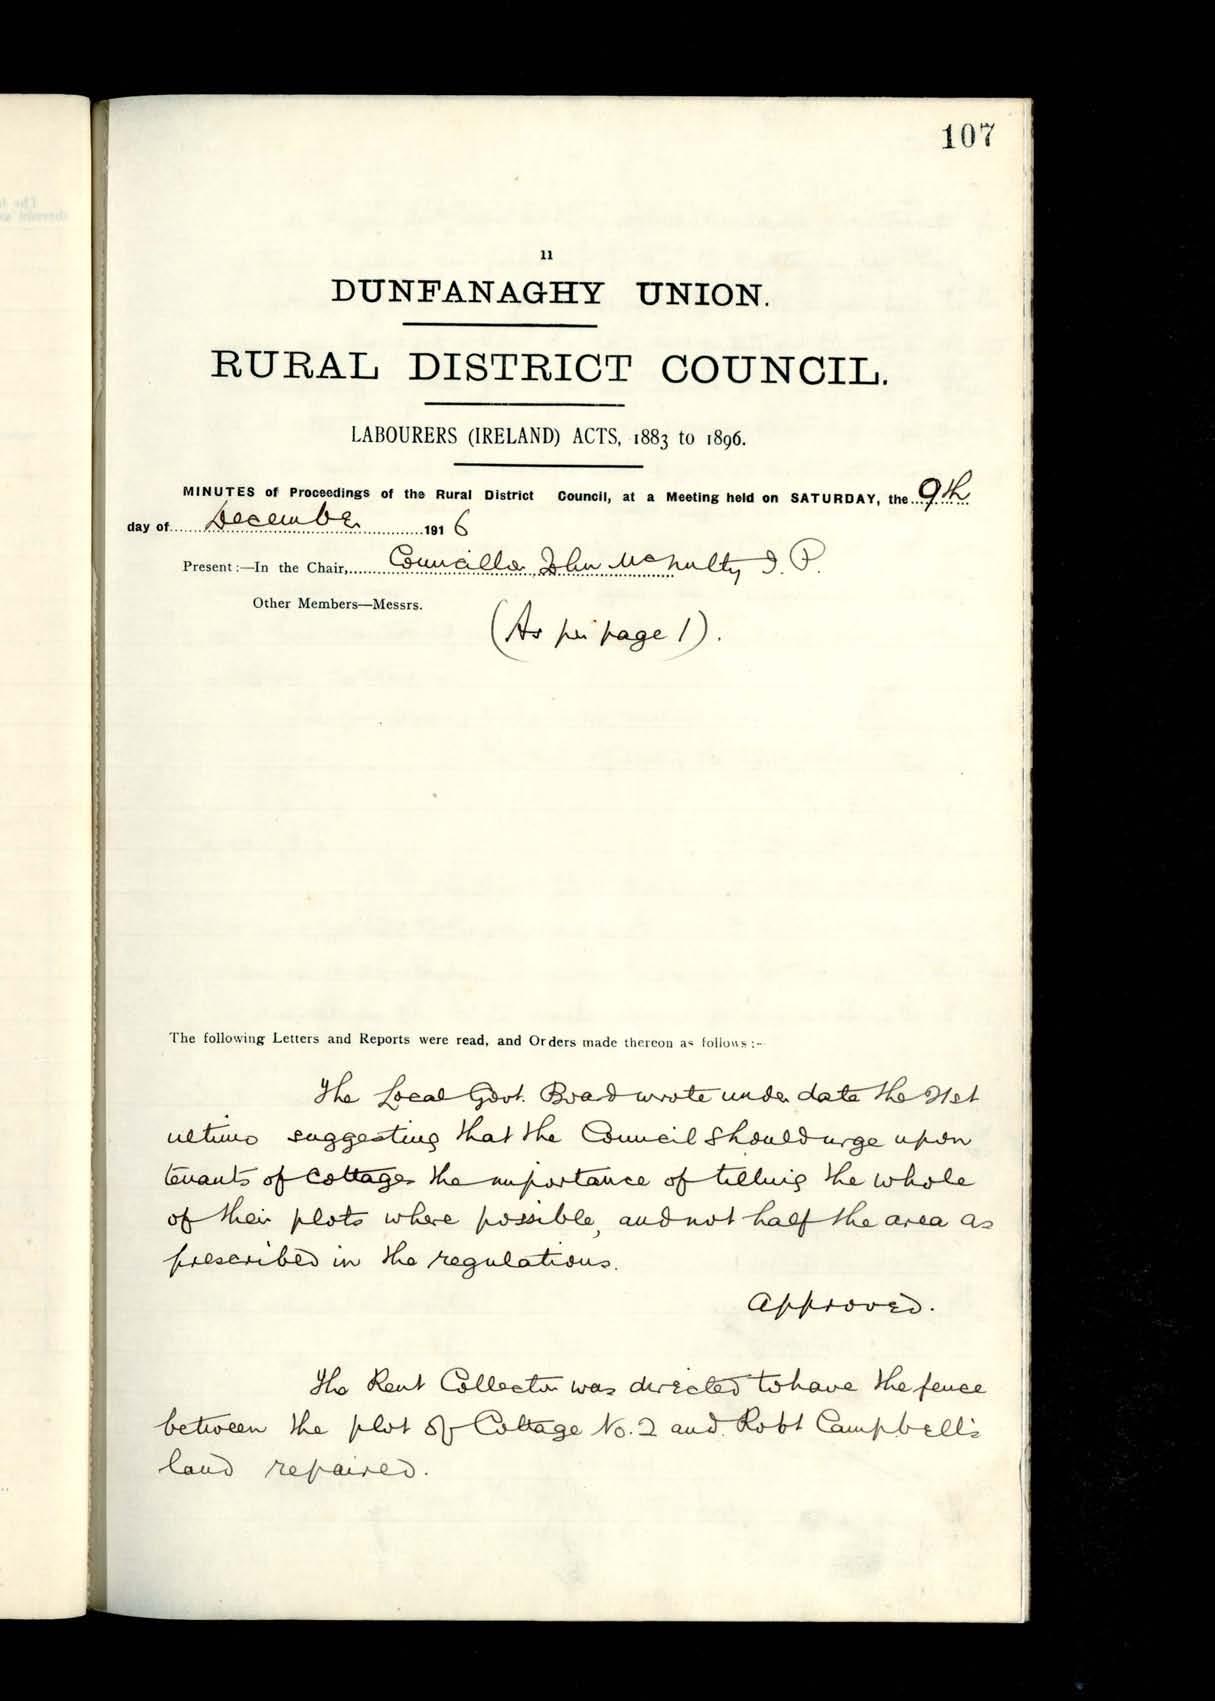 107
11
DUNFANAGHY UNION.
RURAL DISTRICT COUNCIL.
LABOURERS (IRELAND) ACTS, 1883 to 1896.
MINUTES of Proceedings of the Rural District Council, at a Meeting held on SATURDAY, the 9th
day of December 1916
Present:—In the Chair, Councillor John McNulty J. P.
Other Members—Messrs.
(As per page 1).
The following Letters and Reports were read, and Orders made thereon as follows:-
The Local Govt. Board wrote under date the 21st
ultimo suggesting that the Council should urge upon
tenants of cottages the importance of tilling the whole
of their plots where possible, and not half the area as
prescribed in the regulations.
Approved.
The Rent Collector was directed to have the fence
between the plot of Cottage No. 2 and Robt Campbell's
land repaired.